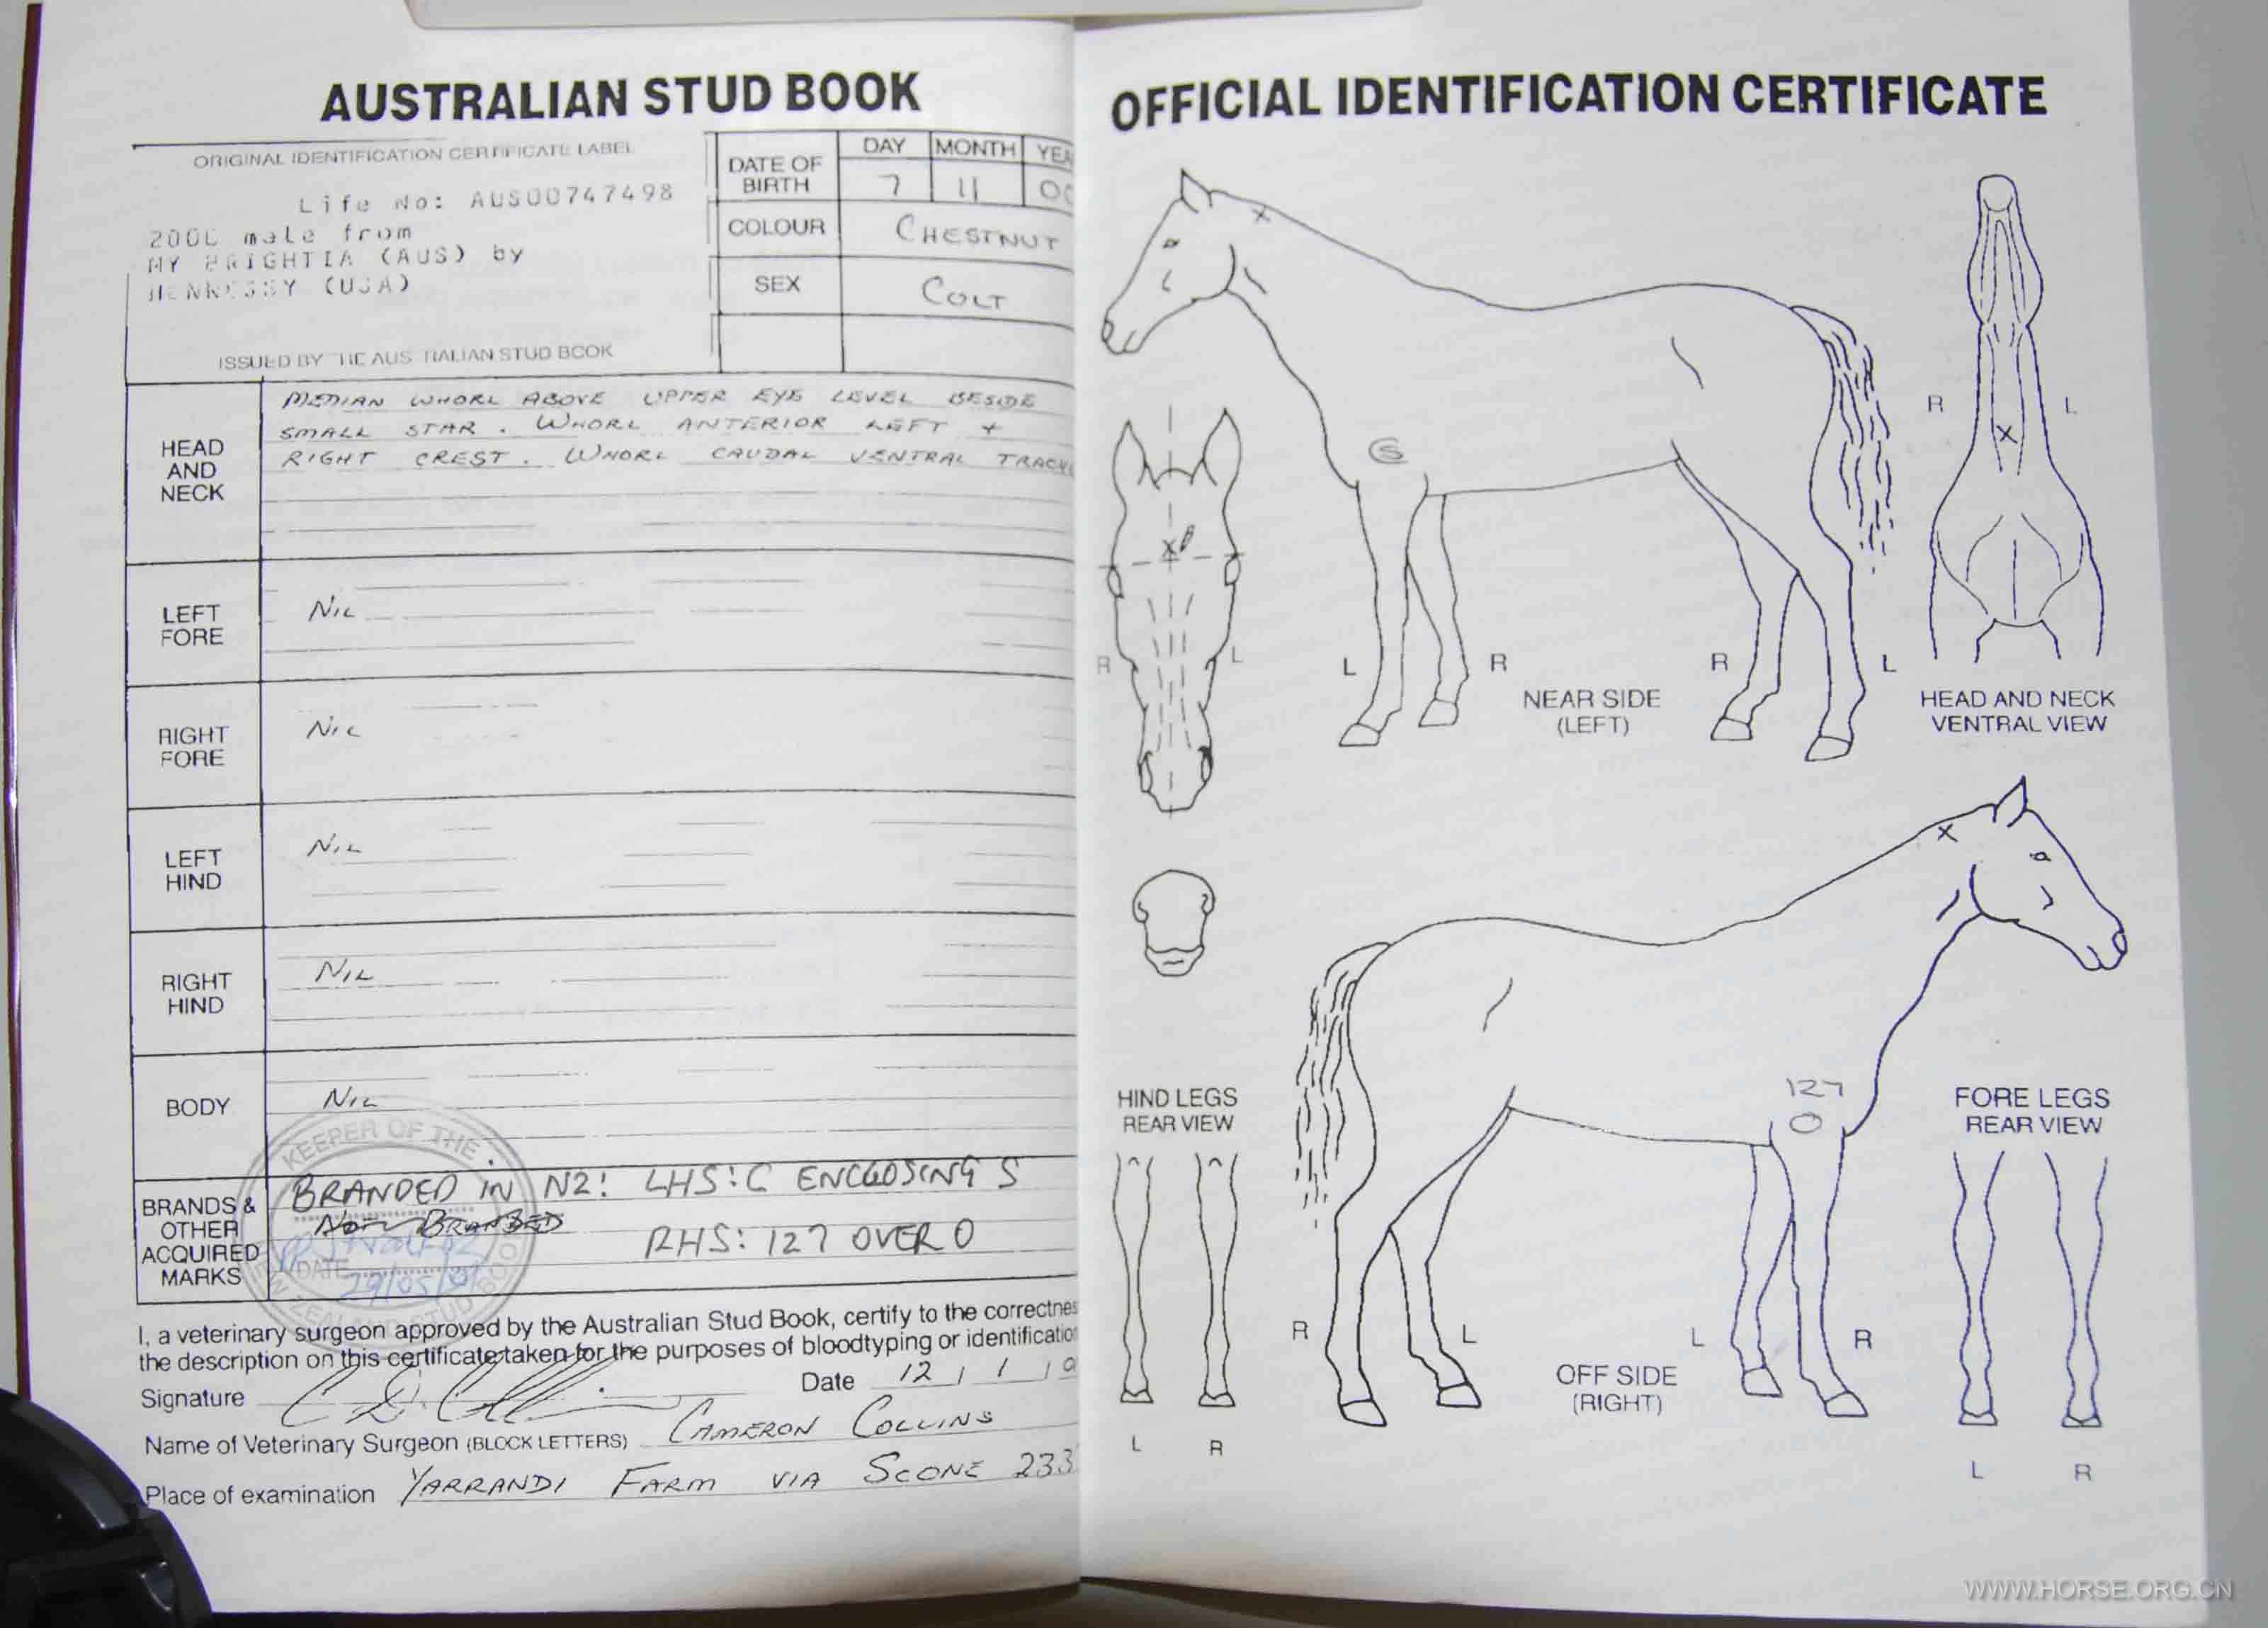 AUSTRALIAN STUD BOOK
ORIGINAL IDENTIFICATION CERTIFICATE LABEL
Life No: AUS00747498
male from
MY BRIGHTIA (AUS) by
HENNESSY (USA)
ISSUED BY THE AUSTRALIAN STUD BOOK
DATE OF BIRTH
DAY MONTH
7 11
COLOUR CHESTNUT
SEX COLT
HEAD AND NECK
MEDIAN WHORL ABOVE UPPER EYE LEVEL BESIDE
SMALL STAR. WHORL ANTERIOR LEFT +
RIGHT CREST. WHORL CAUDAL VENTRAL
LEFT FORE Nil
RIGHT FORE Nil
LEFT HIND Nil
RIGHT HIND Nil
BODY Nil
BRANDS & OTHER ACQUIRED MARKS
BRANDED IN NZ: LHS: C ENCLOSING S
NOT BRANDED
RHS: 127 OVER O
KEEPER OF THE
NEW ZEALAND STUD BOOK
DATE
29/05/01
I, a veterinary surgeon approved by the Australian Stud Book, certify to the
the description on this certificate taken for the purposes of bloodtyping or
Signature
Date 12 / 1 /
Name of Veterinary Surgeon (BLOCK LETTERS) CAMERON COLLINS
Place of examination YARRANDI FARM VIA SCONE
OFFICIAL IDENTIFICATION CERTIFICATE
X
S
X
R L
X
R L
L R
NEAR SIDE
(LEFT)
R L
HEAD AND NECK
VENTRAL VIEW
X
127
O
HIND LEGS
REAR VIEW
FORE LEGS
REAR VIEW
R L
OFF SIDE
(RIGHT)
L R
L R
L R
WWW.HORSE.ORG.CN